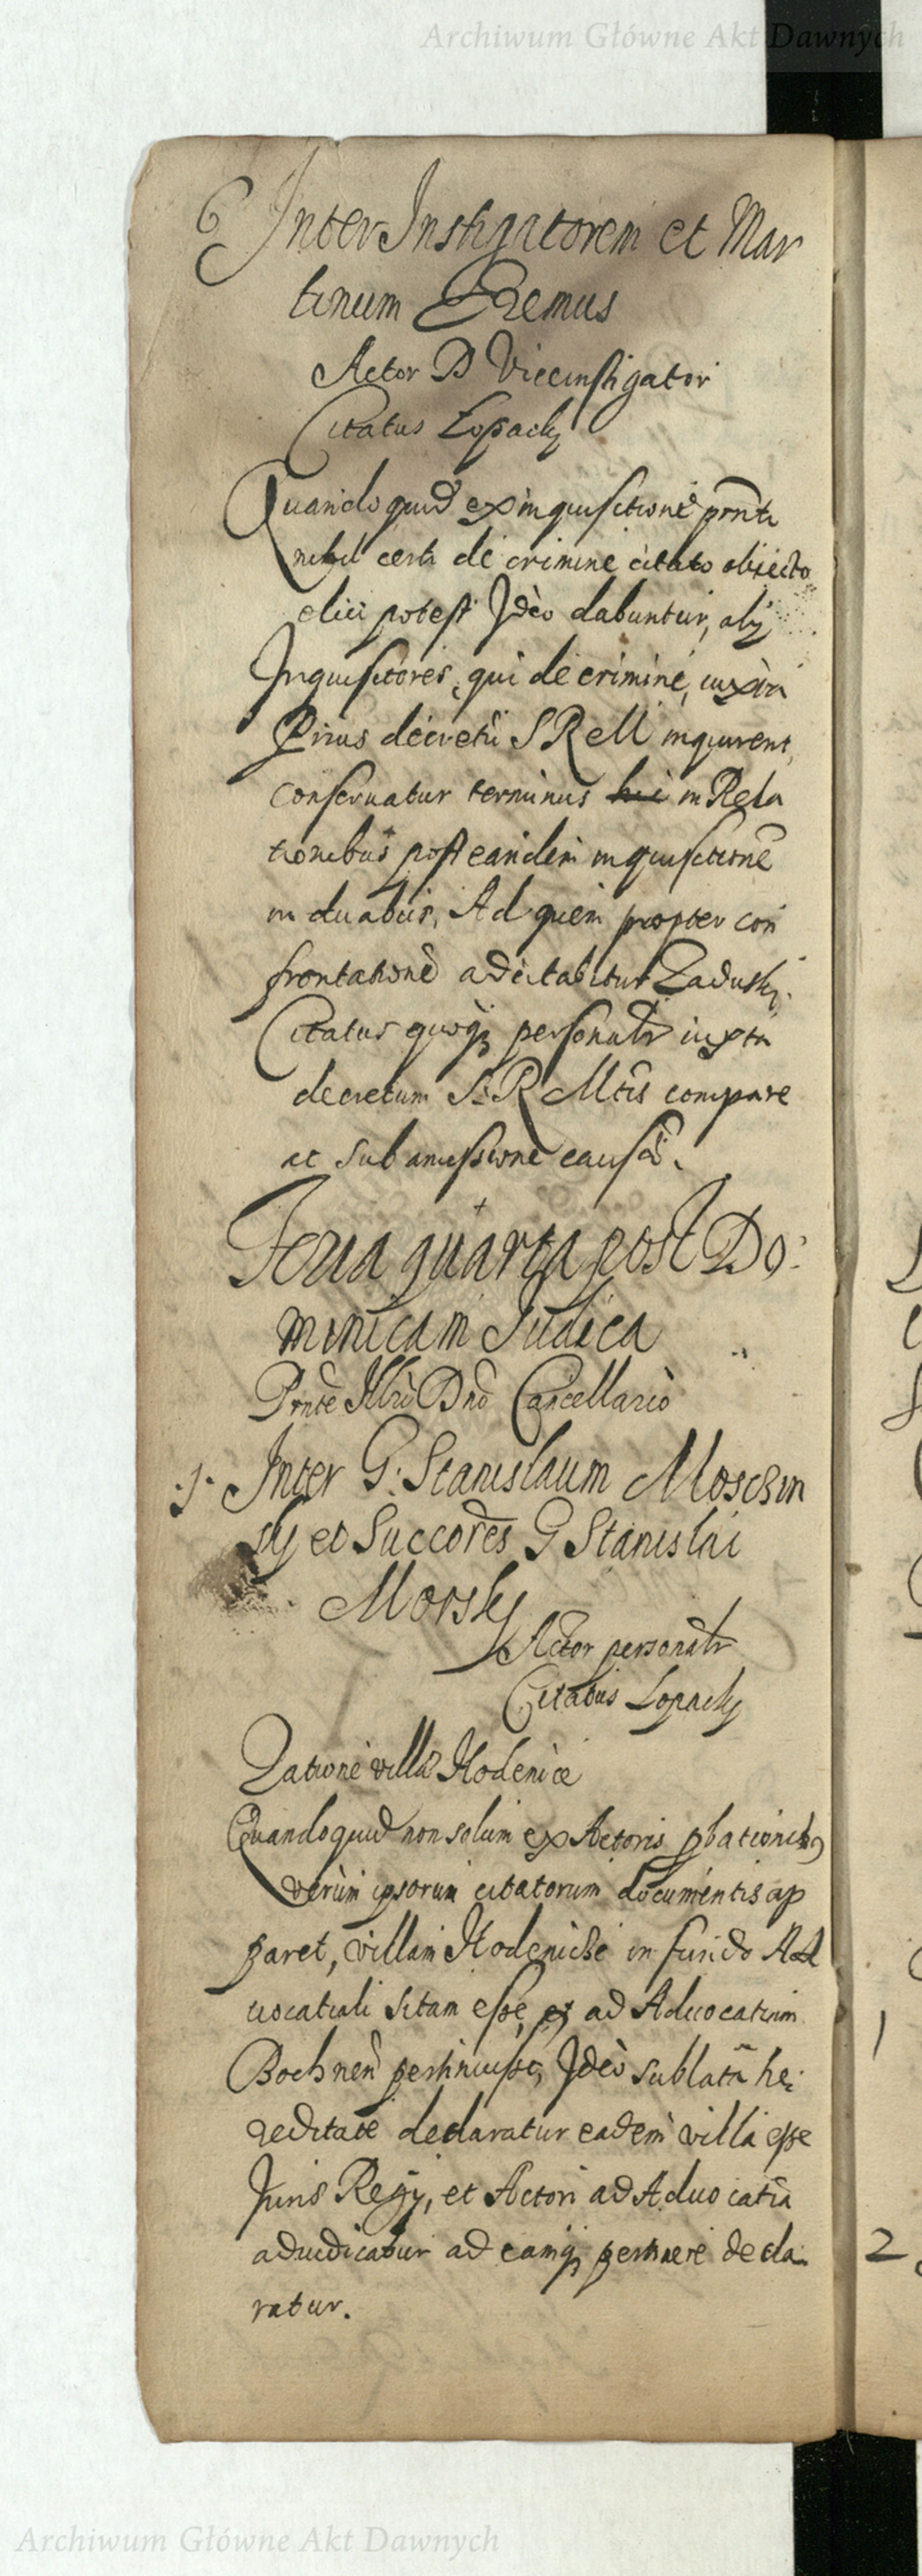 Archiwum Główne Akt Dawnych
6 Inter Instigatorem et Mar
tinum Eremus
Actor D Viceinstigator
Citatus Lopacky
Quandoquid ex inquisitione pnti
nihil certi de crimine citato obiecto
elici potest Ideo dabuntur, alij
Inquisitores, qui de crimine, iuxta
prius decretũ S R M inquirent,
conseruatur terminus in Rela
tionibus post eandem inquisitionẽ
in duabus, Ad quem propter con
frontationẽ adcitabitur Zadusky.
Citatus quoqz personalr iuxta
decretum S: R Mtis compare
at sub amissione causæ.
Feria quarta post Do:
minicam Iudica
Pnte Illri Dno Cancellario
.1. Inter G: Stanislaum Moschin
sky et Succores G Stanislai
Morsky
Actor personalr
Citatus Lopacky
Ratione villæ Hodenice
Quandoquid non solum ex Actoris pbationibus
verùm ipsorum citatorum documentis ap
paret, villam Hodeniche in fundo Ad
uocatiali sitam esse, et ad Aduocatiam
Bochnen pertinuisse, Ideo sublata he:
reditate declaratur eadem villa esse
Juris Regij, et Actori ad Aduocatiã
adiudicatur ad eamqz pertinere decla
ratur.
1
2
Archiwum Główne Akt Dawnych